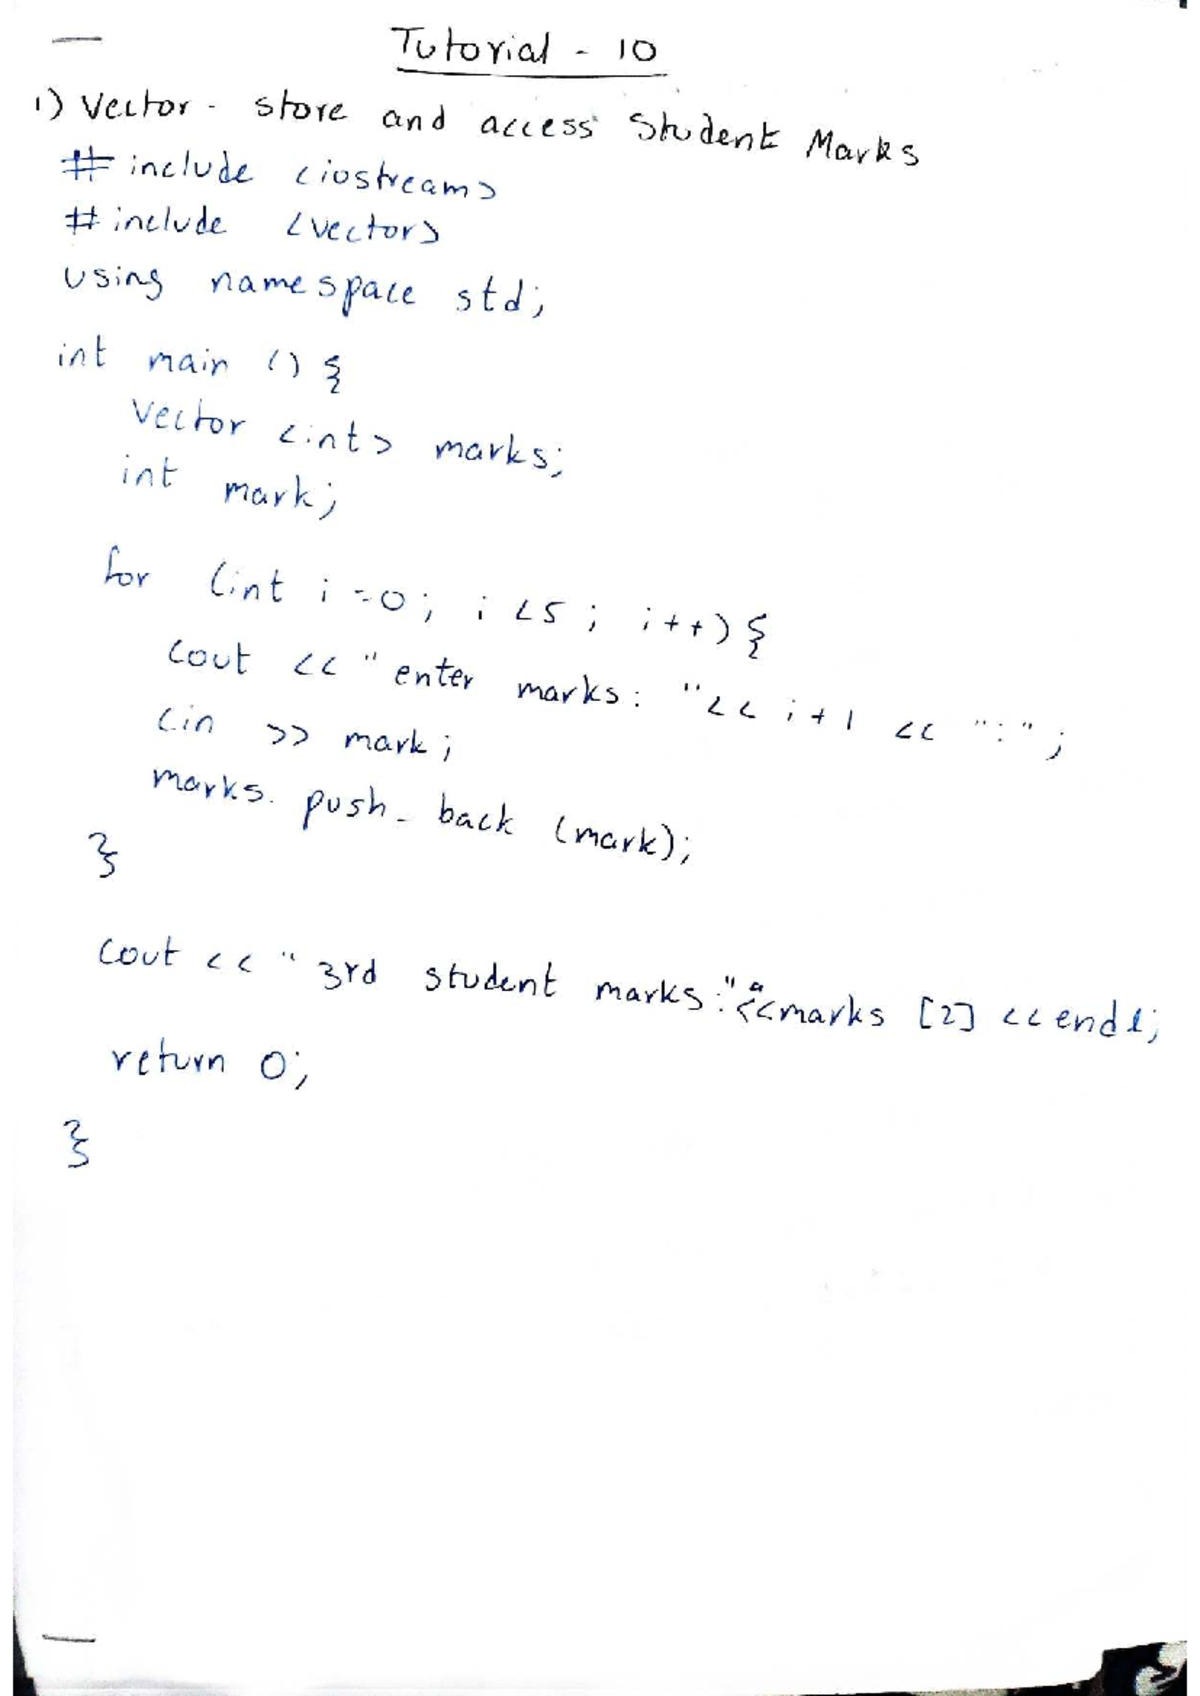 Tutorial - 10
1) Vector - store and access Student Marks
# include <iostream>
# include <vector>
using namespace std;
int main () {
vector <int> marks;
int mark;
for (int i = 0; i < 5; i++) {
cout << " enter marks: " << i + 1 << ":" ;
cin >> mark;
marks. push_ back (mark);
}
cout << " 3rd student marks:" << marks [2] << endl;
return 0;
}